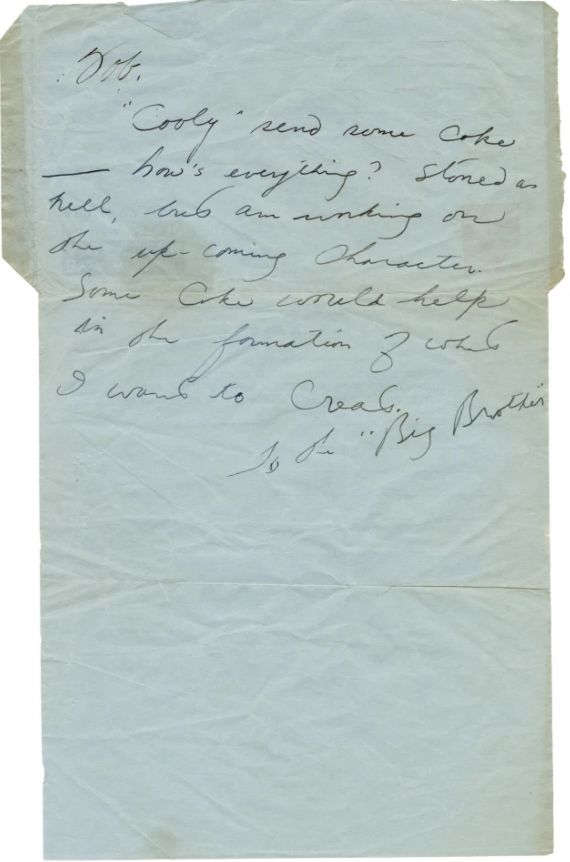 Bob,
"Cooly" send some Coke
— how's everything? Stoned as
hell, but am working on
the up-coming character.
Some Coke would help
in the formation of what
I want to Creat.
To the "Big Brother"